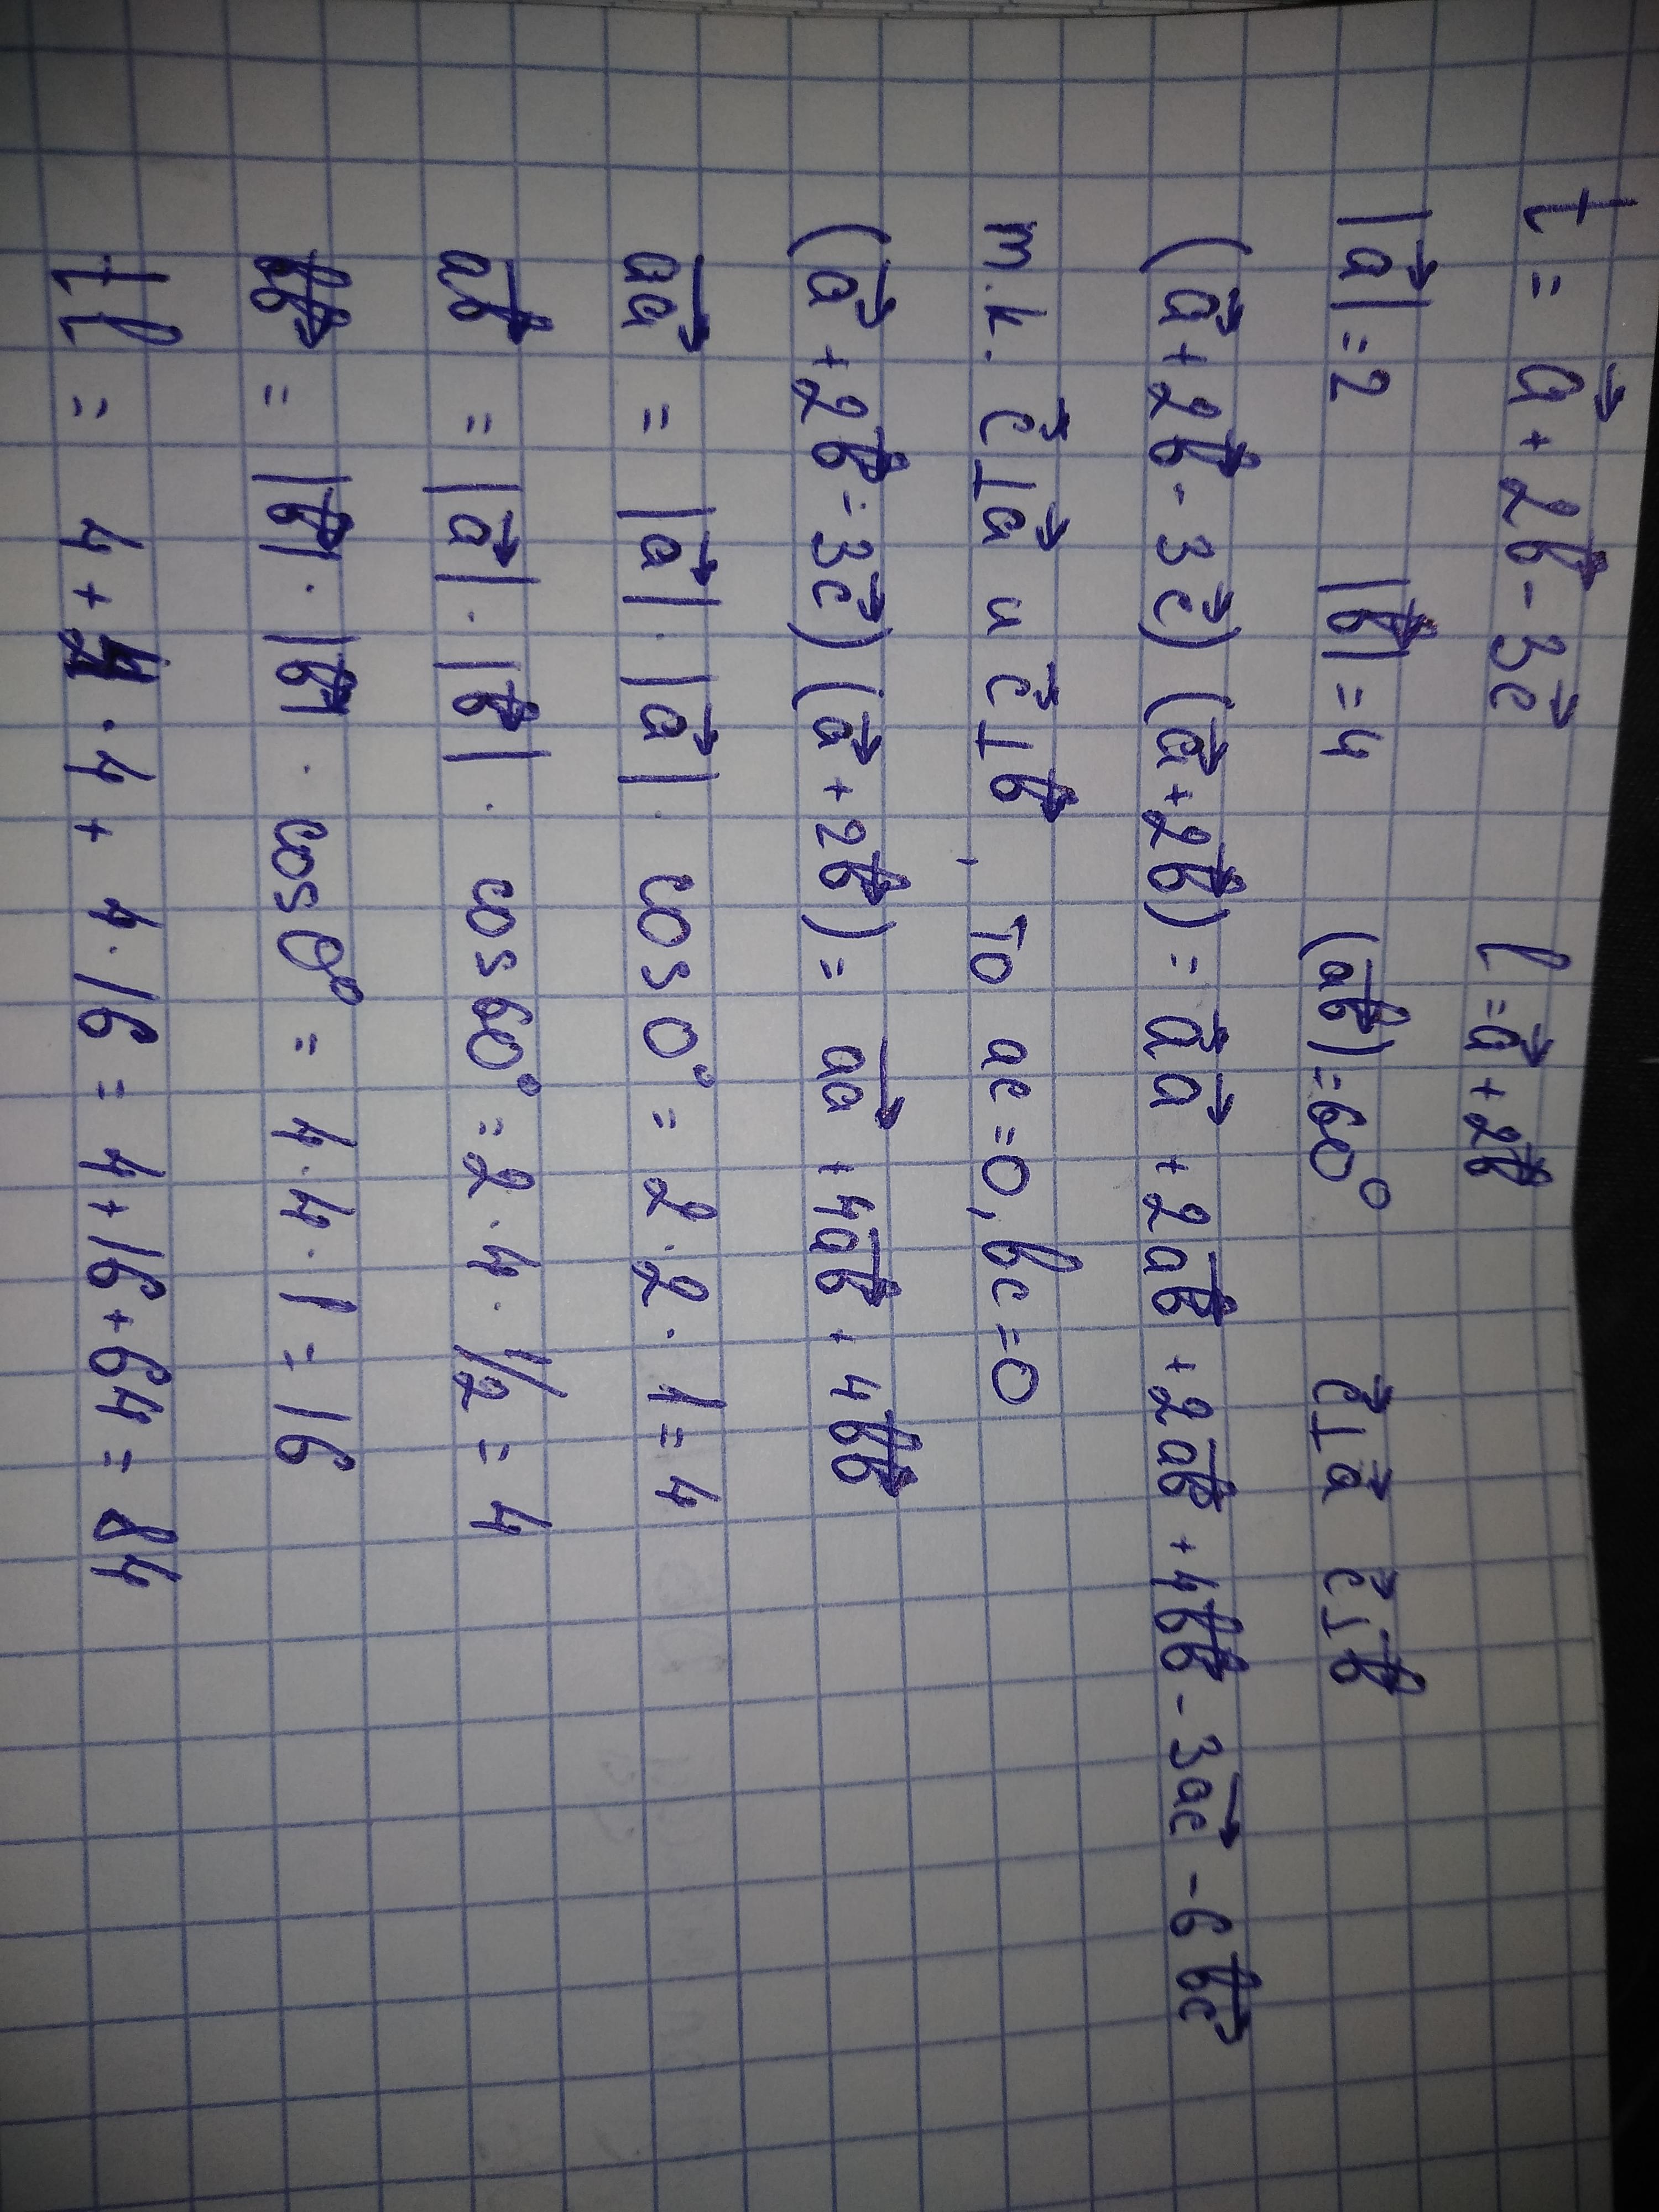 t = a⃗ + 2b⃗ - 3c⃗ l = a⃗ + 2b⃗
|a⃗| = 2 |b⃗| = 4 (ab⃗) = 60° c⃗ ⊥ a⃗ c⃗ ⊥ b⃗
(a⃗ + 2b⃗ - 3c⃗) (a⃗ + 2b⃗) = a⃗ a⃗ + 2ab⃗ + 2ab⃗ + 4bb⃗ - 3ac⃗ - 6bc⃗
т.к. c⃗ ⊥ a⃗ и c⃗ ⊥ b⃗, то ac = 0, bc = 0
(a⃗ + 2b⃗ - 3c⃗) (a⃗ + 2b⃗) = aa⃗ + 4ab⃗ + 4bb⃗
aa⃗ = |a⃗| · |a⃗| · cos 0° = 2 · 2 · 1 = 4
ab⃗ = |a⃗| · |b⃗| · cos 60° = 2 · 4 · 1/2 = 4
bb⃗ = |b⃗| · |b⃗| · cos 0° = 4 · 4 · 1 = 16
tl = 4 + 4 · 4 + 4 · 16 = 4 + 16 + 64 = 84